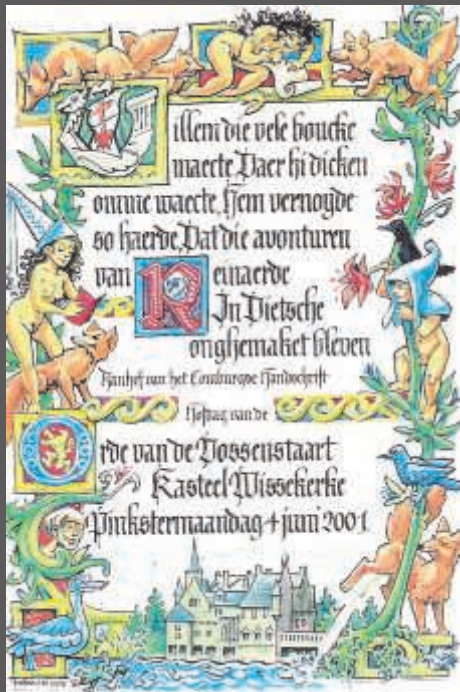 Willem die vele boucke
maecte Daer hi dicken
omme waecte, Hem vernoyde
so haerde, Dat die avonturen
van Reinaerde
In Dietsche
onghemaket bleven
Aanhef van het Comburgse Handschrift
Hofdag van de
Orde van de Vossenstaart
Kasteel Wissekerke
Pinkstermaandag 4 juni 2001